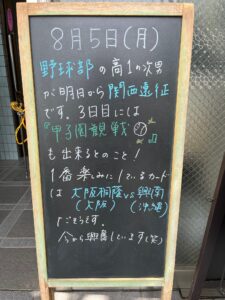 8月5日(月)
野球部の高1の次男
が明日から関西遠征
です。3日目には
『甲子園観戦』
も出来るとのこと!
1番楽しみにしているカード
は大阪桐蔭vs興南
(大阪) (沖縄)
だそうです。
今から興奮しています(笑)